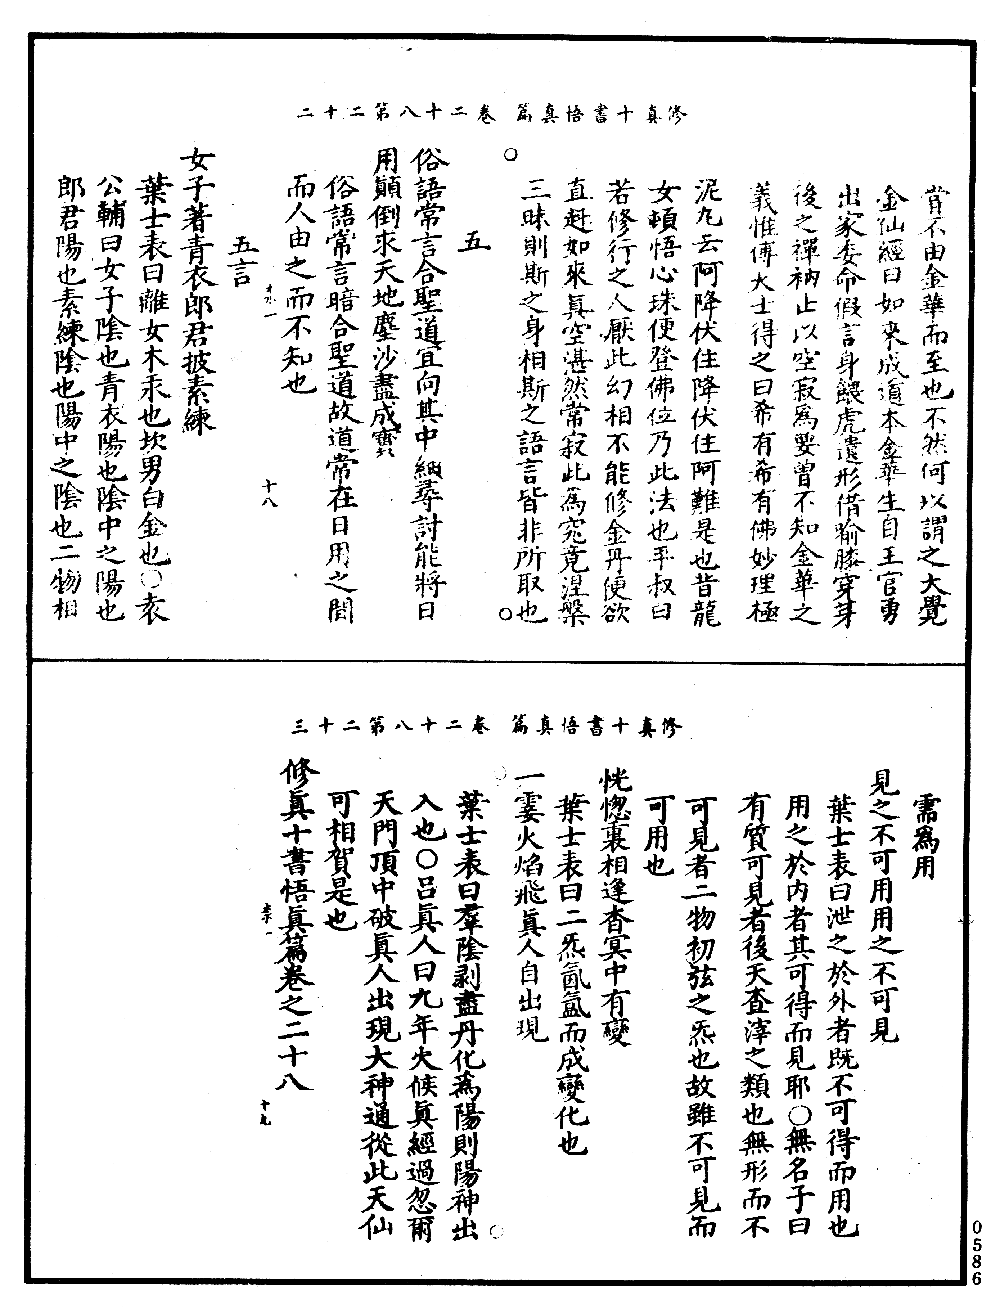 修真十書悟真篇 卷二十八第二十二
嘗不由金華而至也不然何以謂之大覺
金仙經曰如來成道本金華生自王宮勇
出家委命假言身餵虎遺形借喻膝穿芽
後之禪衲止以空寂爲要曾不知金華之
義惟傅大士得之曰希有希有佛妙理極
泥丸云阿降伏住降伏住阿難是也昔龍
女頓悟心珠便登佛位乃此法也平叔曰
若修行之人厭此幻相不能修金丹便欲
直赴如來真空湛然常寂此爲究竟涅槃
三昧則斯之身相斯之語言皆非所取也
五
俗語常言合聖道宜向其中細尋討能將日
用顛倒求天地塵沙盡成寶
俗語常言暗合聖道故道常在日用之間
而人由之而不知也
十八
五言
女子著青衣郎君披素練
葉士表曰離女木汞也坎男白金也○袁
公輔曰女子陰也青衣陽也陰中之陽也
郎君陽也素練陰也陽中之陰也二物相
修真十書悟真篇 卷二十八第二十三
需爲用
見之不可用用之不可見
葉士表曰泄之於外者既不可得而用也
用之於內者其可得而見耶○無名子曰
有質可見者後天查滓之類也無形而不
可見者二物初弦之炁也故雖不可見而
可用也
恍惚裏相逢杳冥中有變
葉士表曰二炁氤氳而成變化也
一霎火焰飛真人自出現
葉士表曰羣陰剥盡丹化爲陽則陽神出
入也○呂真人曰九年火候真經過忽爾
天門頂中破真人出現大神通從此天仙
可相賀是也
修真十書悟真篇卷之二十八
十九
0586